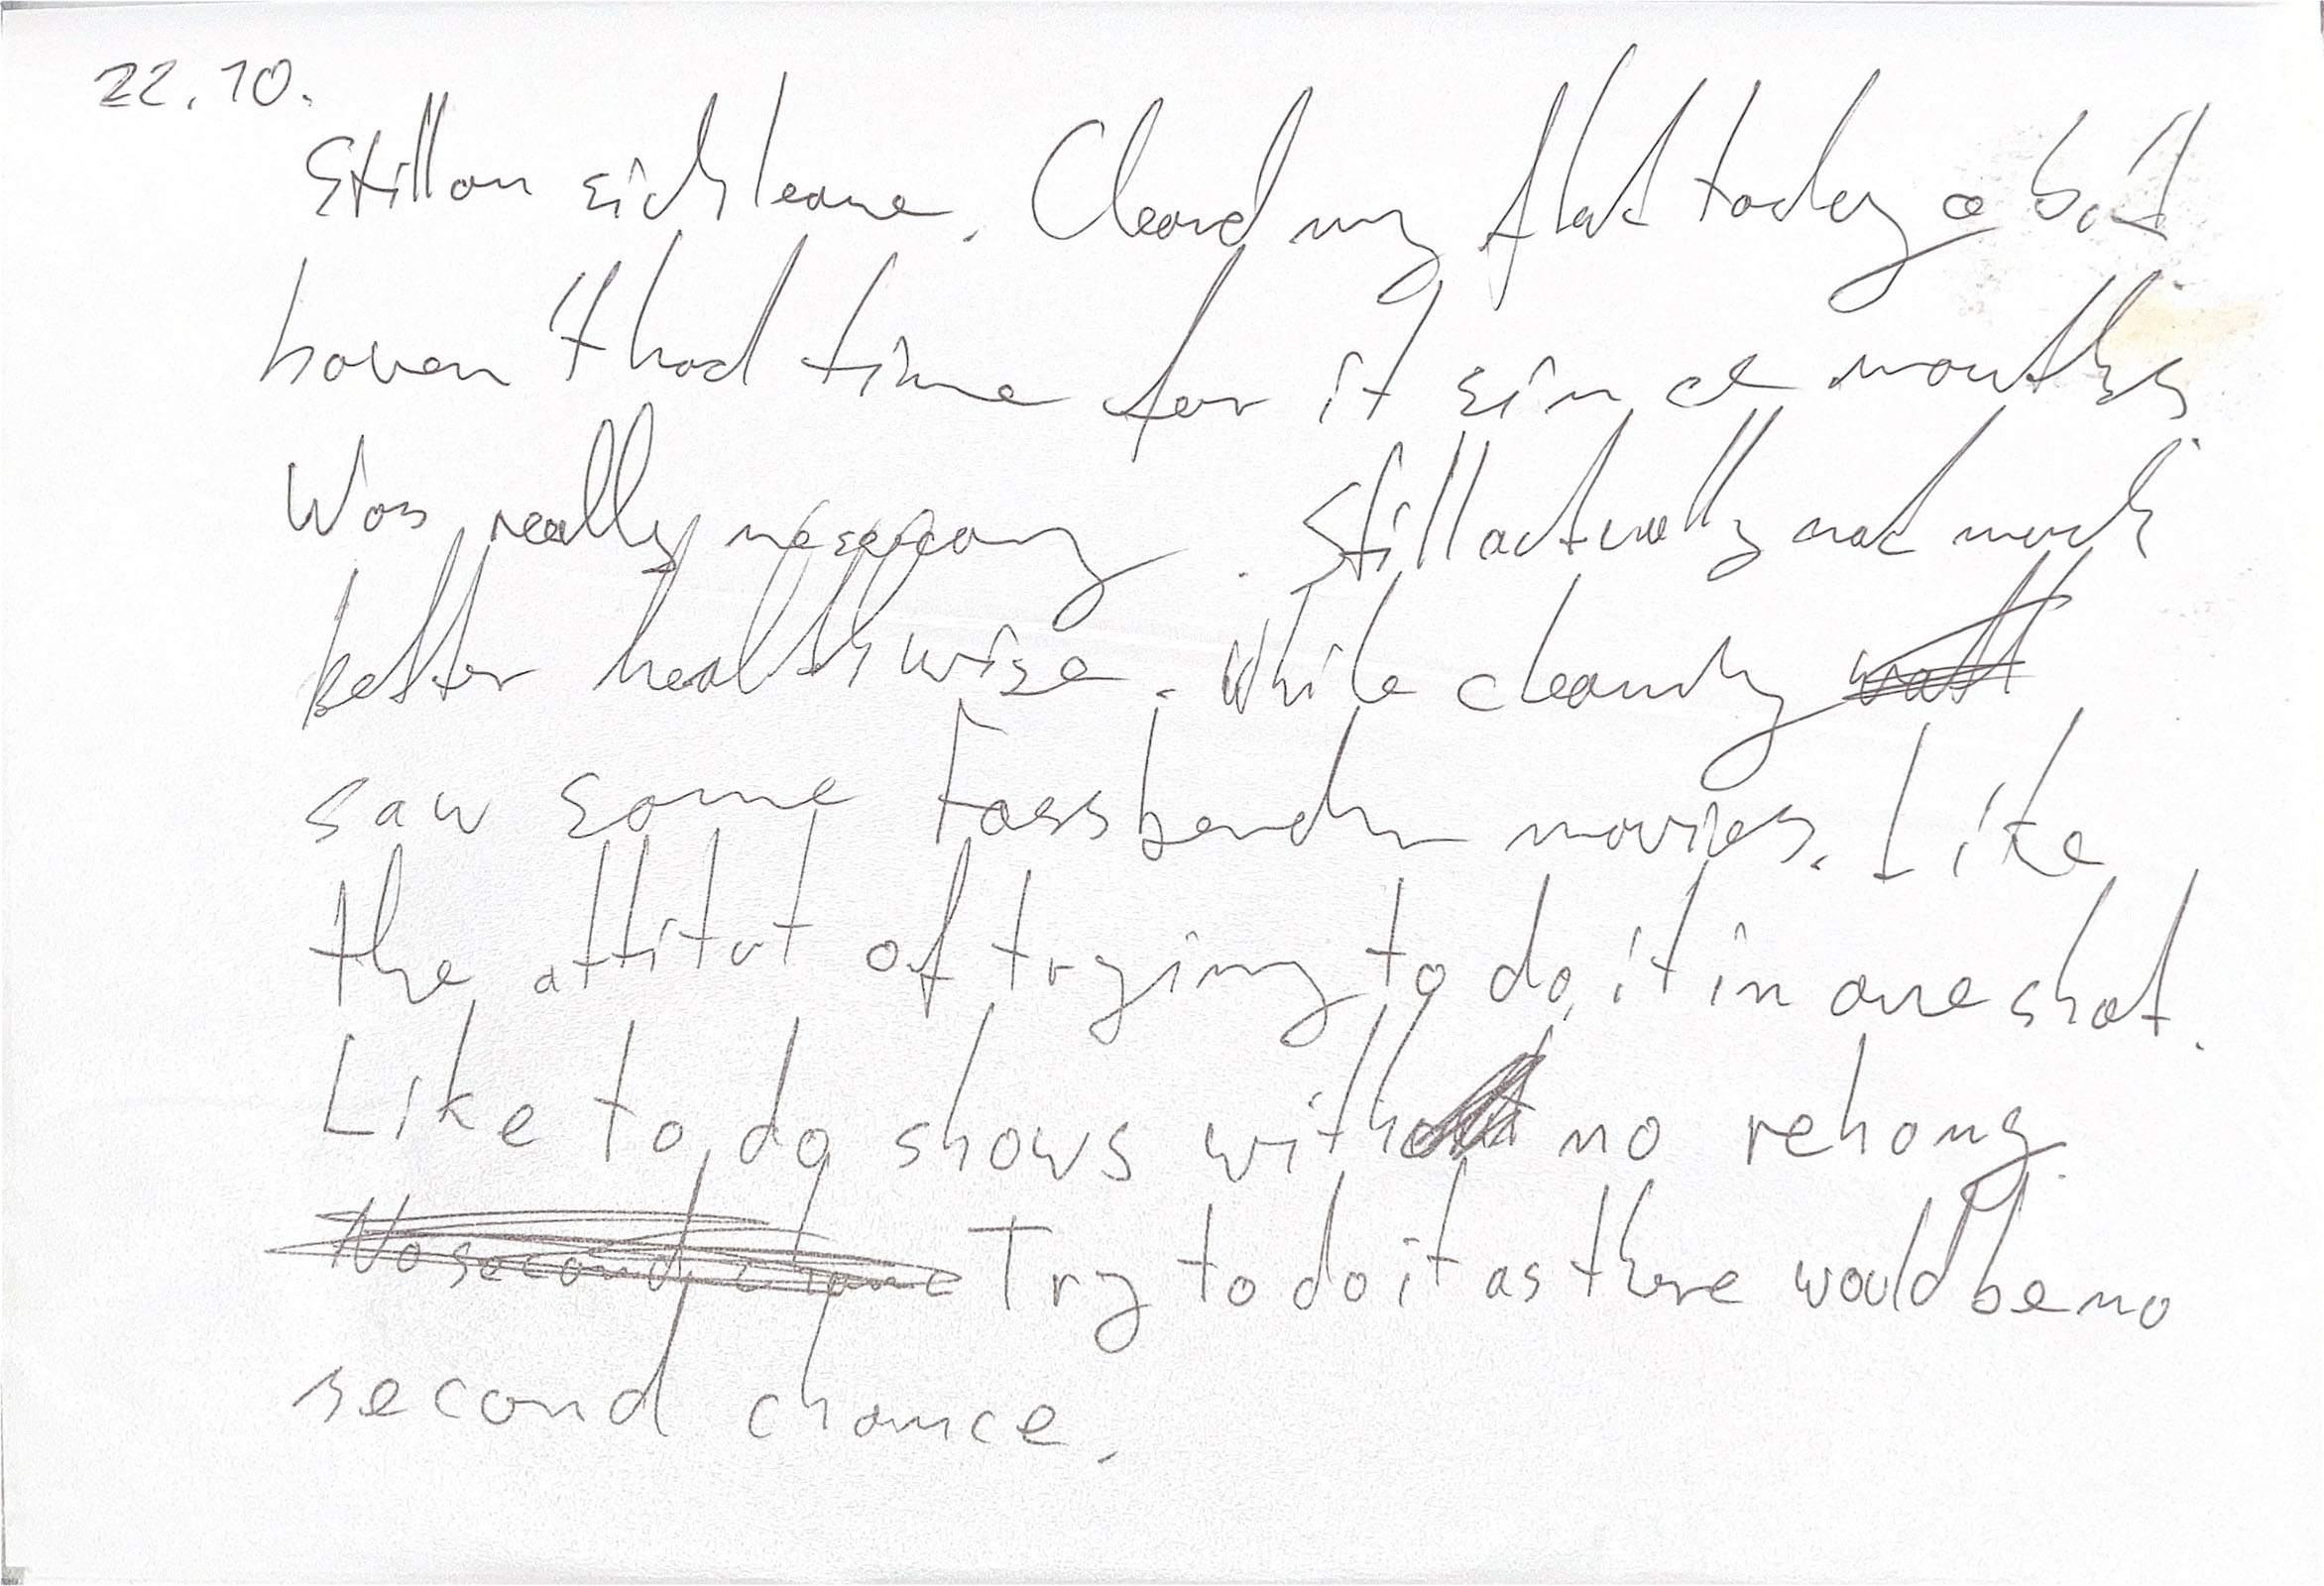 22.10.
Still on sick leave. Cleand my flat today a bit
haven't had time for it since months
Was really necessary. Still actually not much
better healthwise. While cleaning
saw some Fassbender movies. Like
the attitut of trying to do it in one shot.
Like to do shows with no rehany.
No second chance Try to do it as there would be no
second chance.